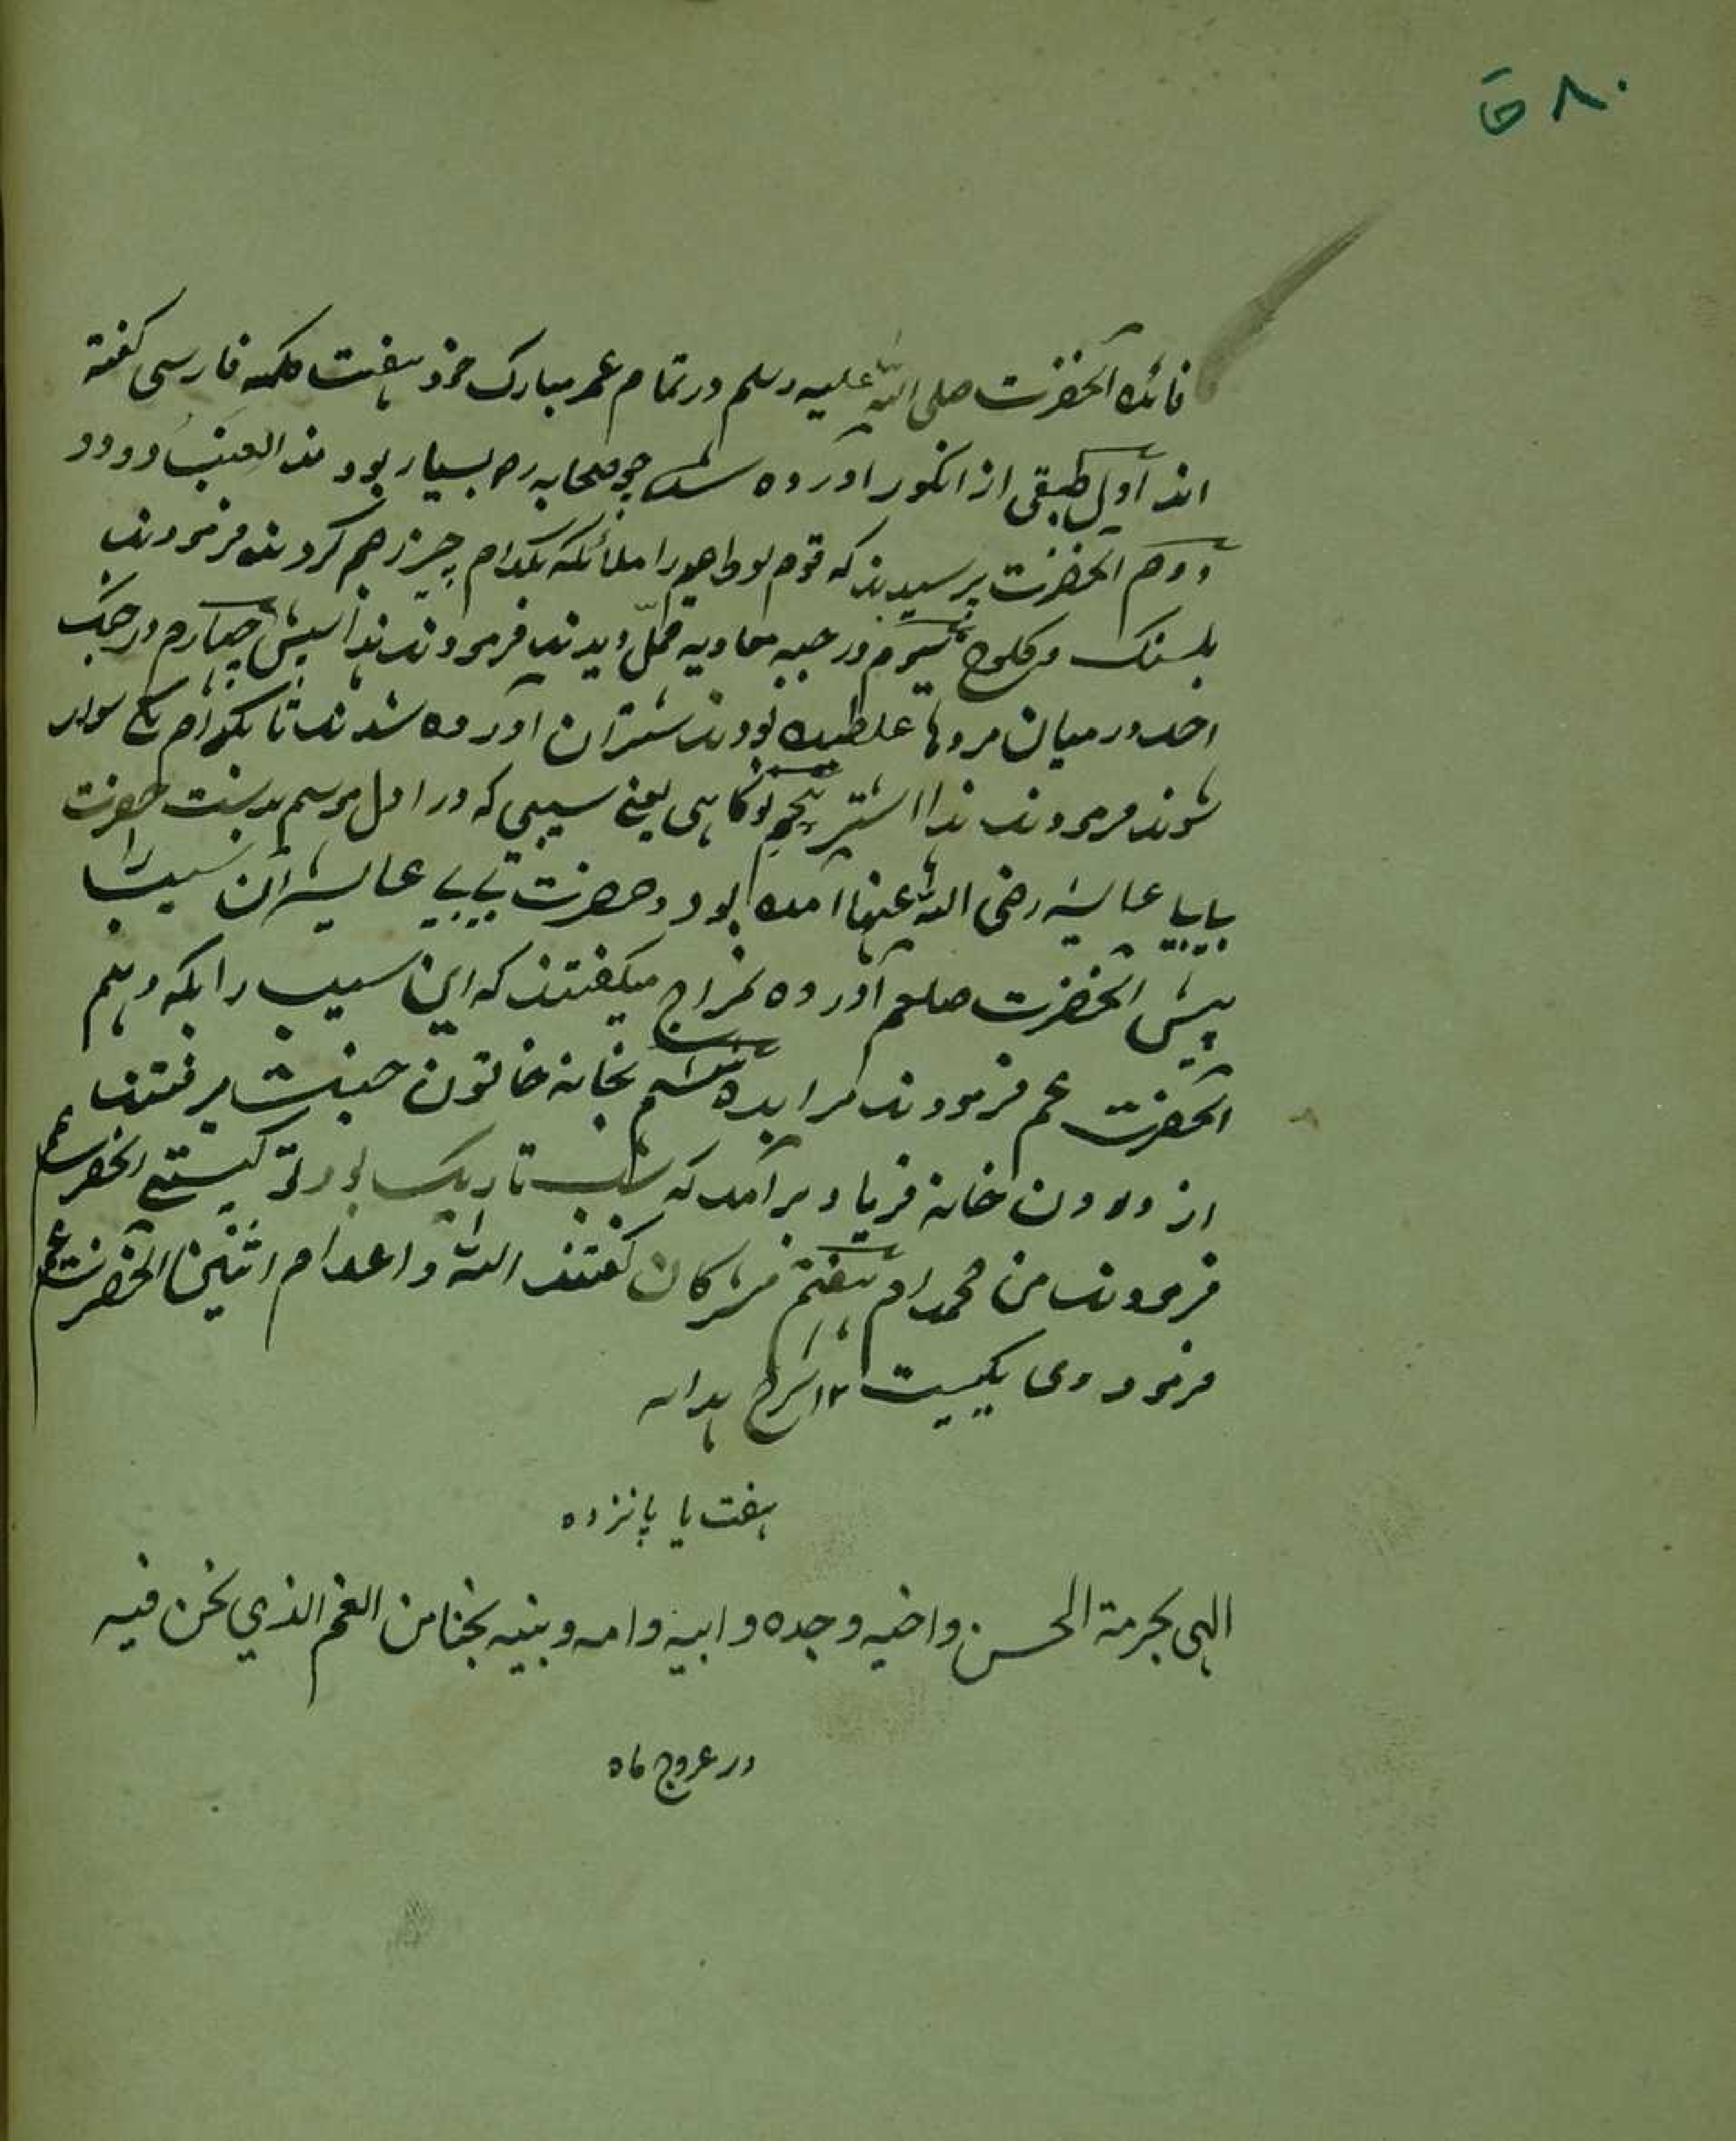 ۸۰ ق
فائده آنحضرت صلی الله علیه وسلم در تمام عمر مبارک خود هفت کلمه فارسی گفته
اند اول طبقی از انکور آورده صحابه رض بسیار بود هذا العنب دو دو
دوم آنحضرت پرسیدند که قوم لوط را ملائکه بکدام چیز رجم کردند فرمودند
بسنک و کلوخ سیوم در جبه معاویه قمل دیدند فرمودند هذا سپش چهارم در جنک
احد در میان مردها غلطیده بودند شتران آورده شدند تا بکدام سوار
شوند فرمودند هذا اشتر پنجم نوکاهی یعنی سیبی که در اول موسم بدست حضرت
بابیبی عایشه رضی الله عنها آمده بود و حضرت بی بی عایشه آن سیب را
پیش آنحضرت صلعم آورده بمزاح میکفتند که این سیب را بکه دهم
آنحضرت عم فرمودند مرا بده ششم بخانه خاتون جنت رفتند
از درون خانه فریاد برآمد که شب تاریک بود تو کیستی آنحضرت عم
فرمودند من محمدام هفتم مشرکان گفتند الله واعدام اثنین آنحضرت عم
فرمودی یکیست ۱۲ شرح هدایه
هفت یا پانزده
الهی بحرمة الحسن واخیه وجده وابیه وامه وبنیه نجنا من الغم الذي نحن فیه
در عروج ماه